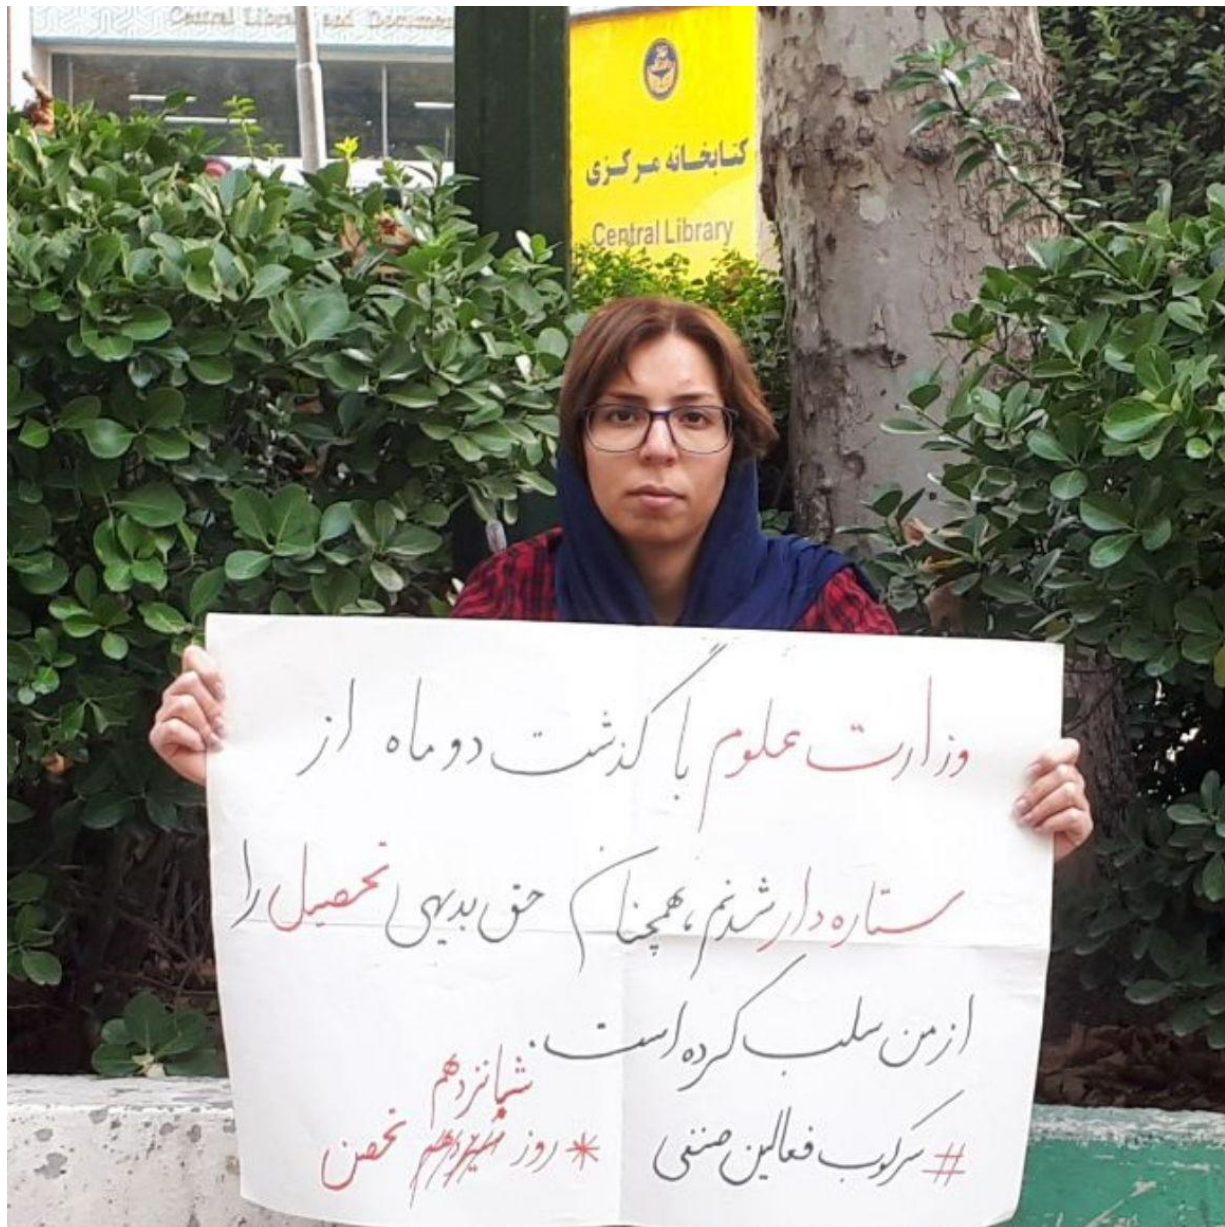 Central Library and Documen
کتابخانه مرکزی
Central Library
وزارت علوم با گذشت دو ماه از
ستاره دار شدنم، همچنان حق بدیهی تحصیل را
از من سلب کرده است.
شانزدهم
#سرکوب فعالین صنفی
* روز تحصن